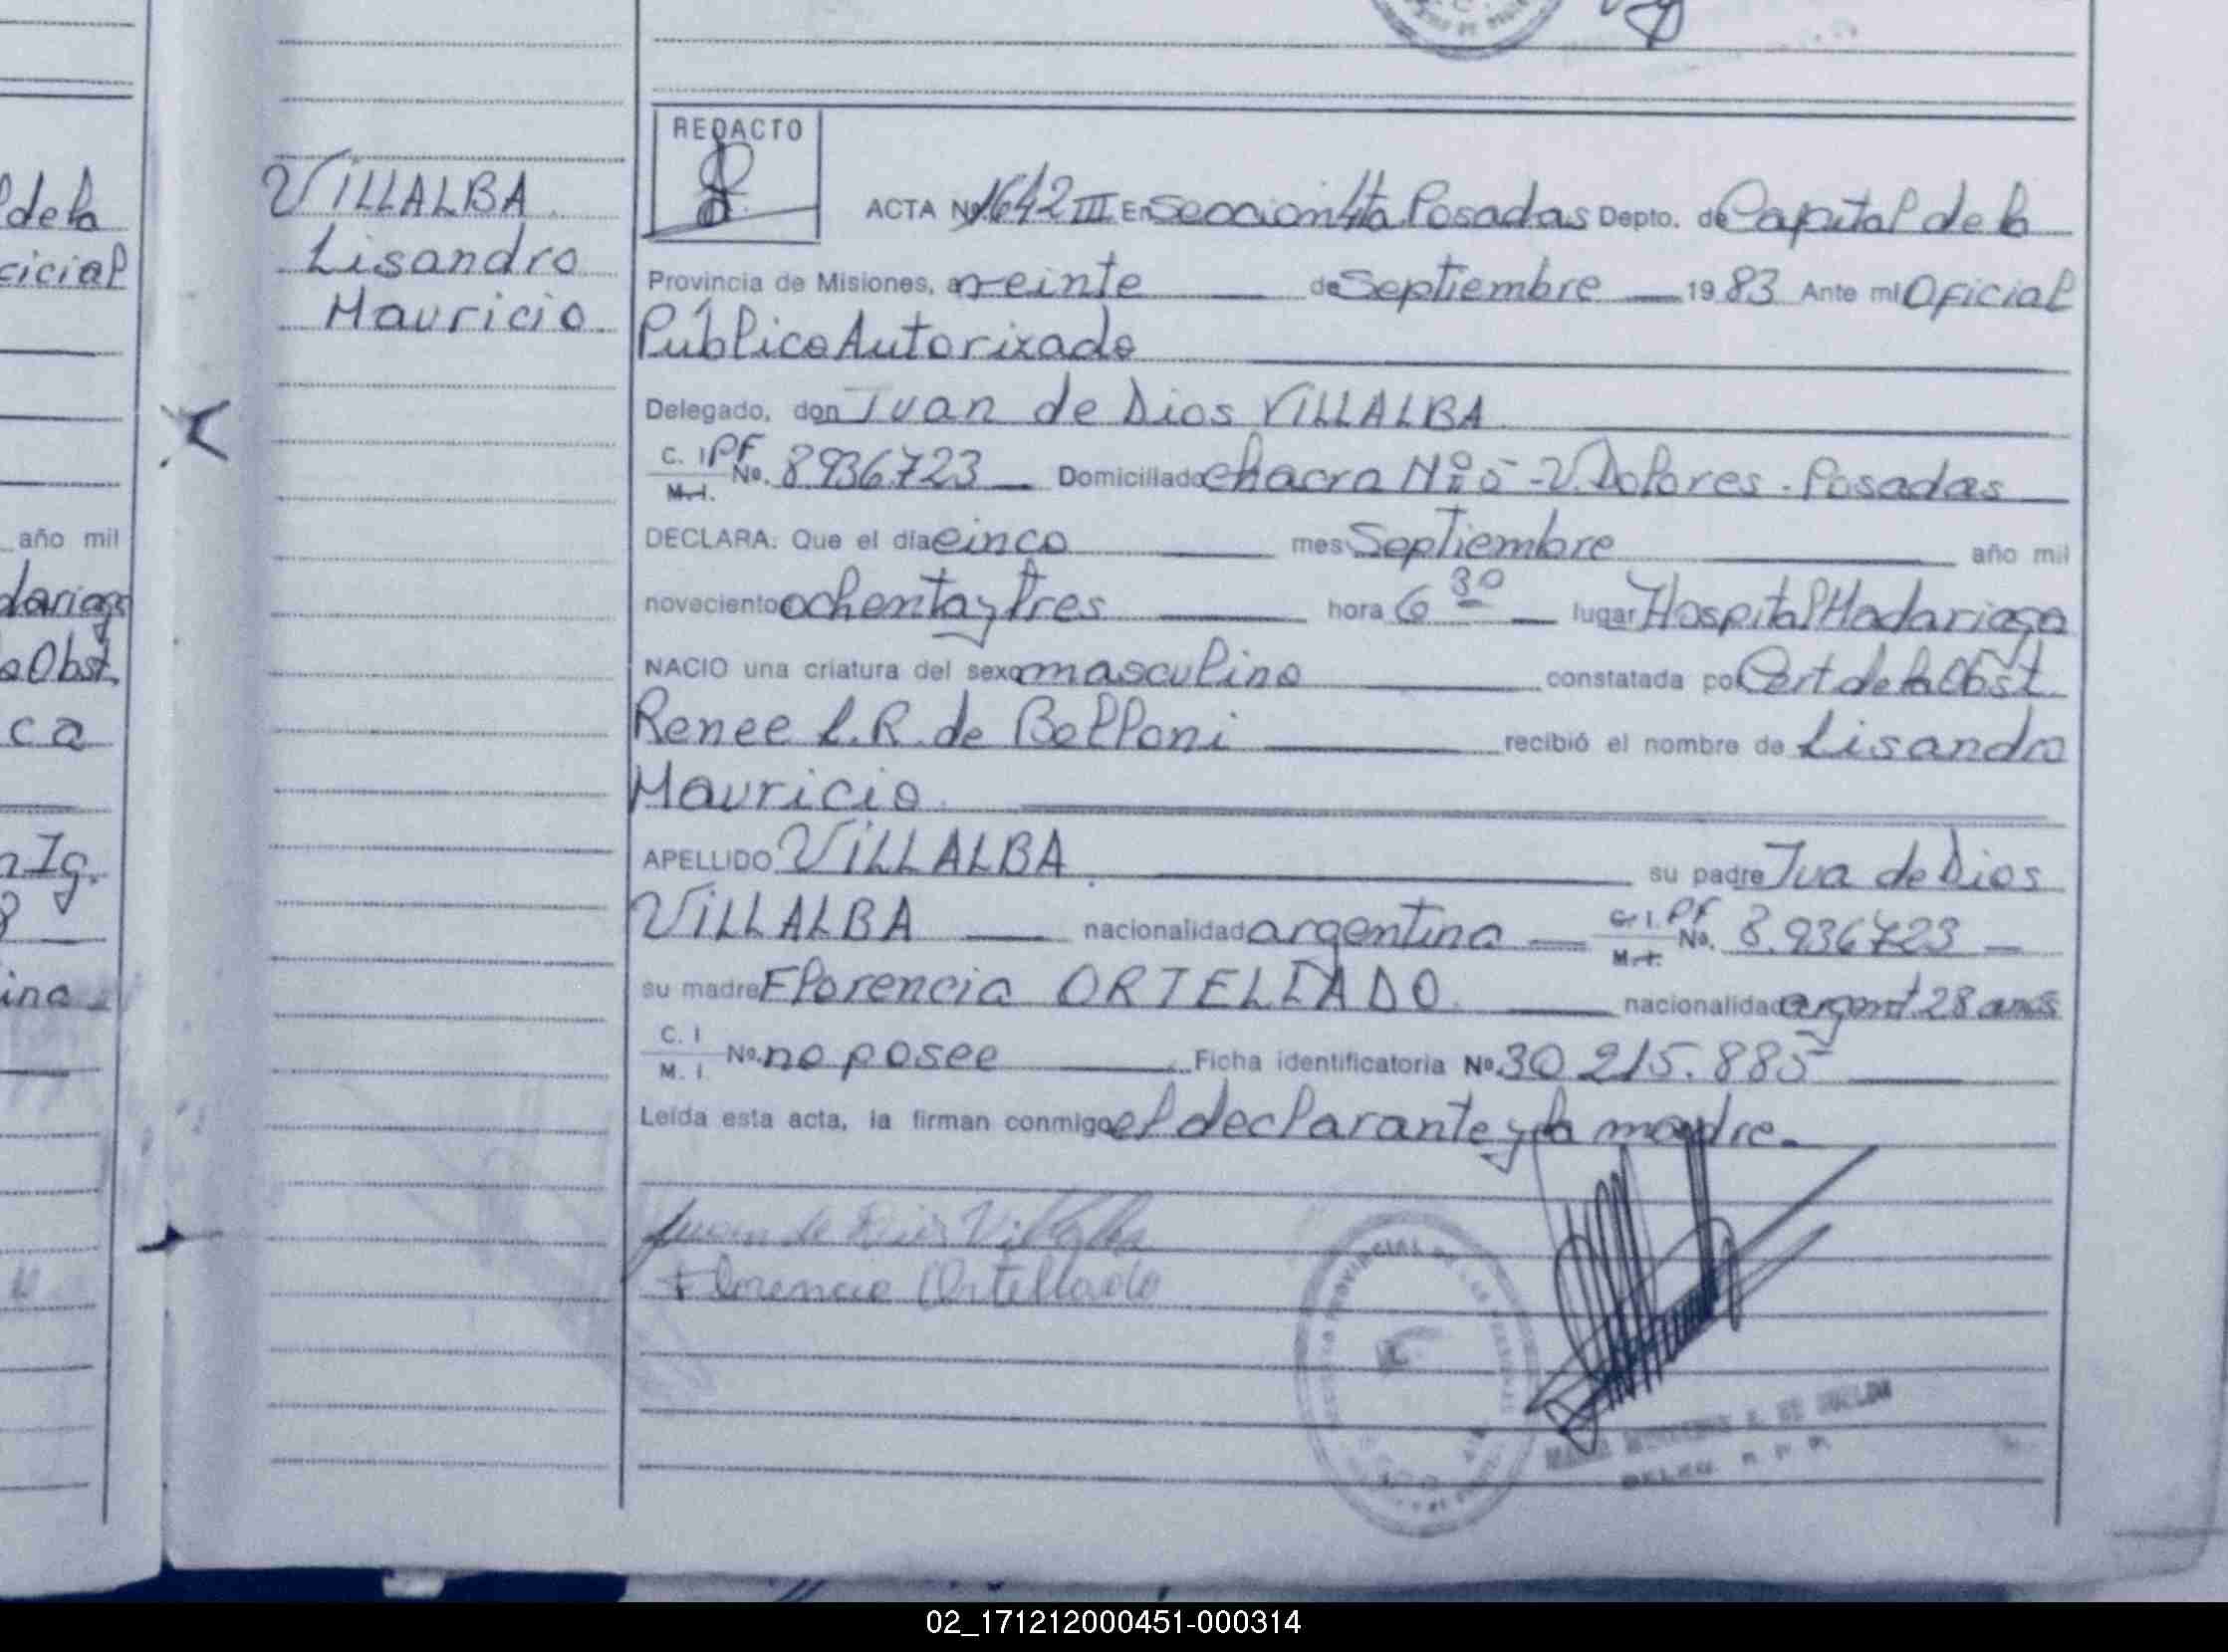 VILLALBA
Lisandro
Mauricio
REDACTO
ACTA Nº 1642 III En Sección 4ta Posadas Depto. de Capital de la
Provincia de Misiones, a veinte de Septiembre 1983 Ante mi Oficial
Público Autorizado
Delegado, don Juan de Dios VILLALBA
C. I. PF
M.I. No. 8936723 Domiciliado chacra Nº 5 - V. Dolores - Posadas
DECLARA: Que el día cinco mes Septiembre año mil
novecientos ochenta y tres hora 6 30 lugar Hospital Madariaga
NACIO una criatura del sexo masculino constatada por Cert de la Obst.
Renee L.R. de Belloni recibió el nombre de Lisandro
Mauricio.
APELLIDO VILLALBA su padre Jua de Dios
VILLALBA nacionalidad argentina C. I. PF
M. I. No. 8.936723
su madre Florencia ORTELLADO nacionalidad argent. 28 años
C. I
M. I. No. no posee Ficha identificatoria Nº 30 215.885
Leída esta acta, la firman conmigo el declarante y la madre.
Juan de Dios Villalba
Florencia Ortellado
de la
cicial
año mil
dariaga
a Obst.
ca
n Ig.
ina
02_171212000451-000314